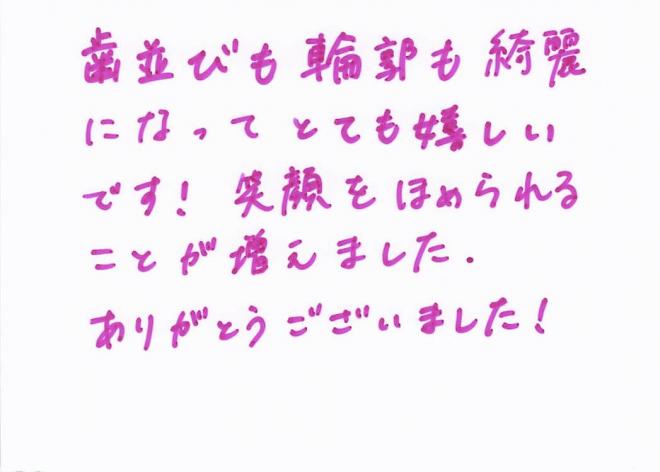 歯並びも輪郭も綺麗
になってとても嬉しい
です！笑顔をほめられる
ことが増えました.
ありがとうございました！